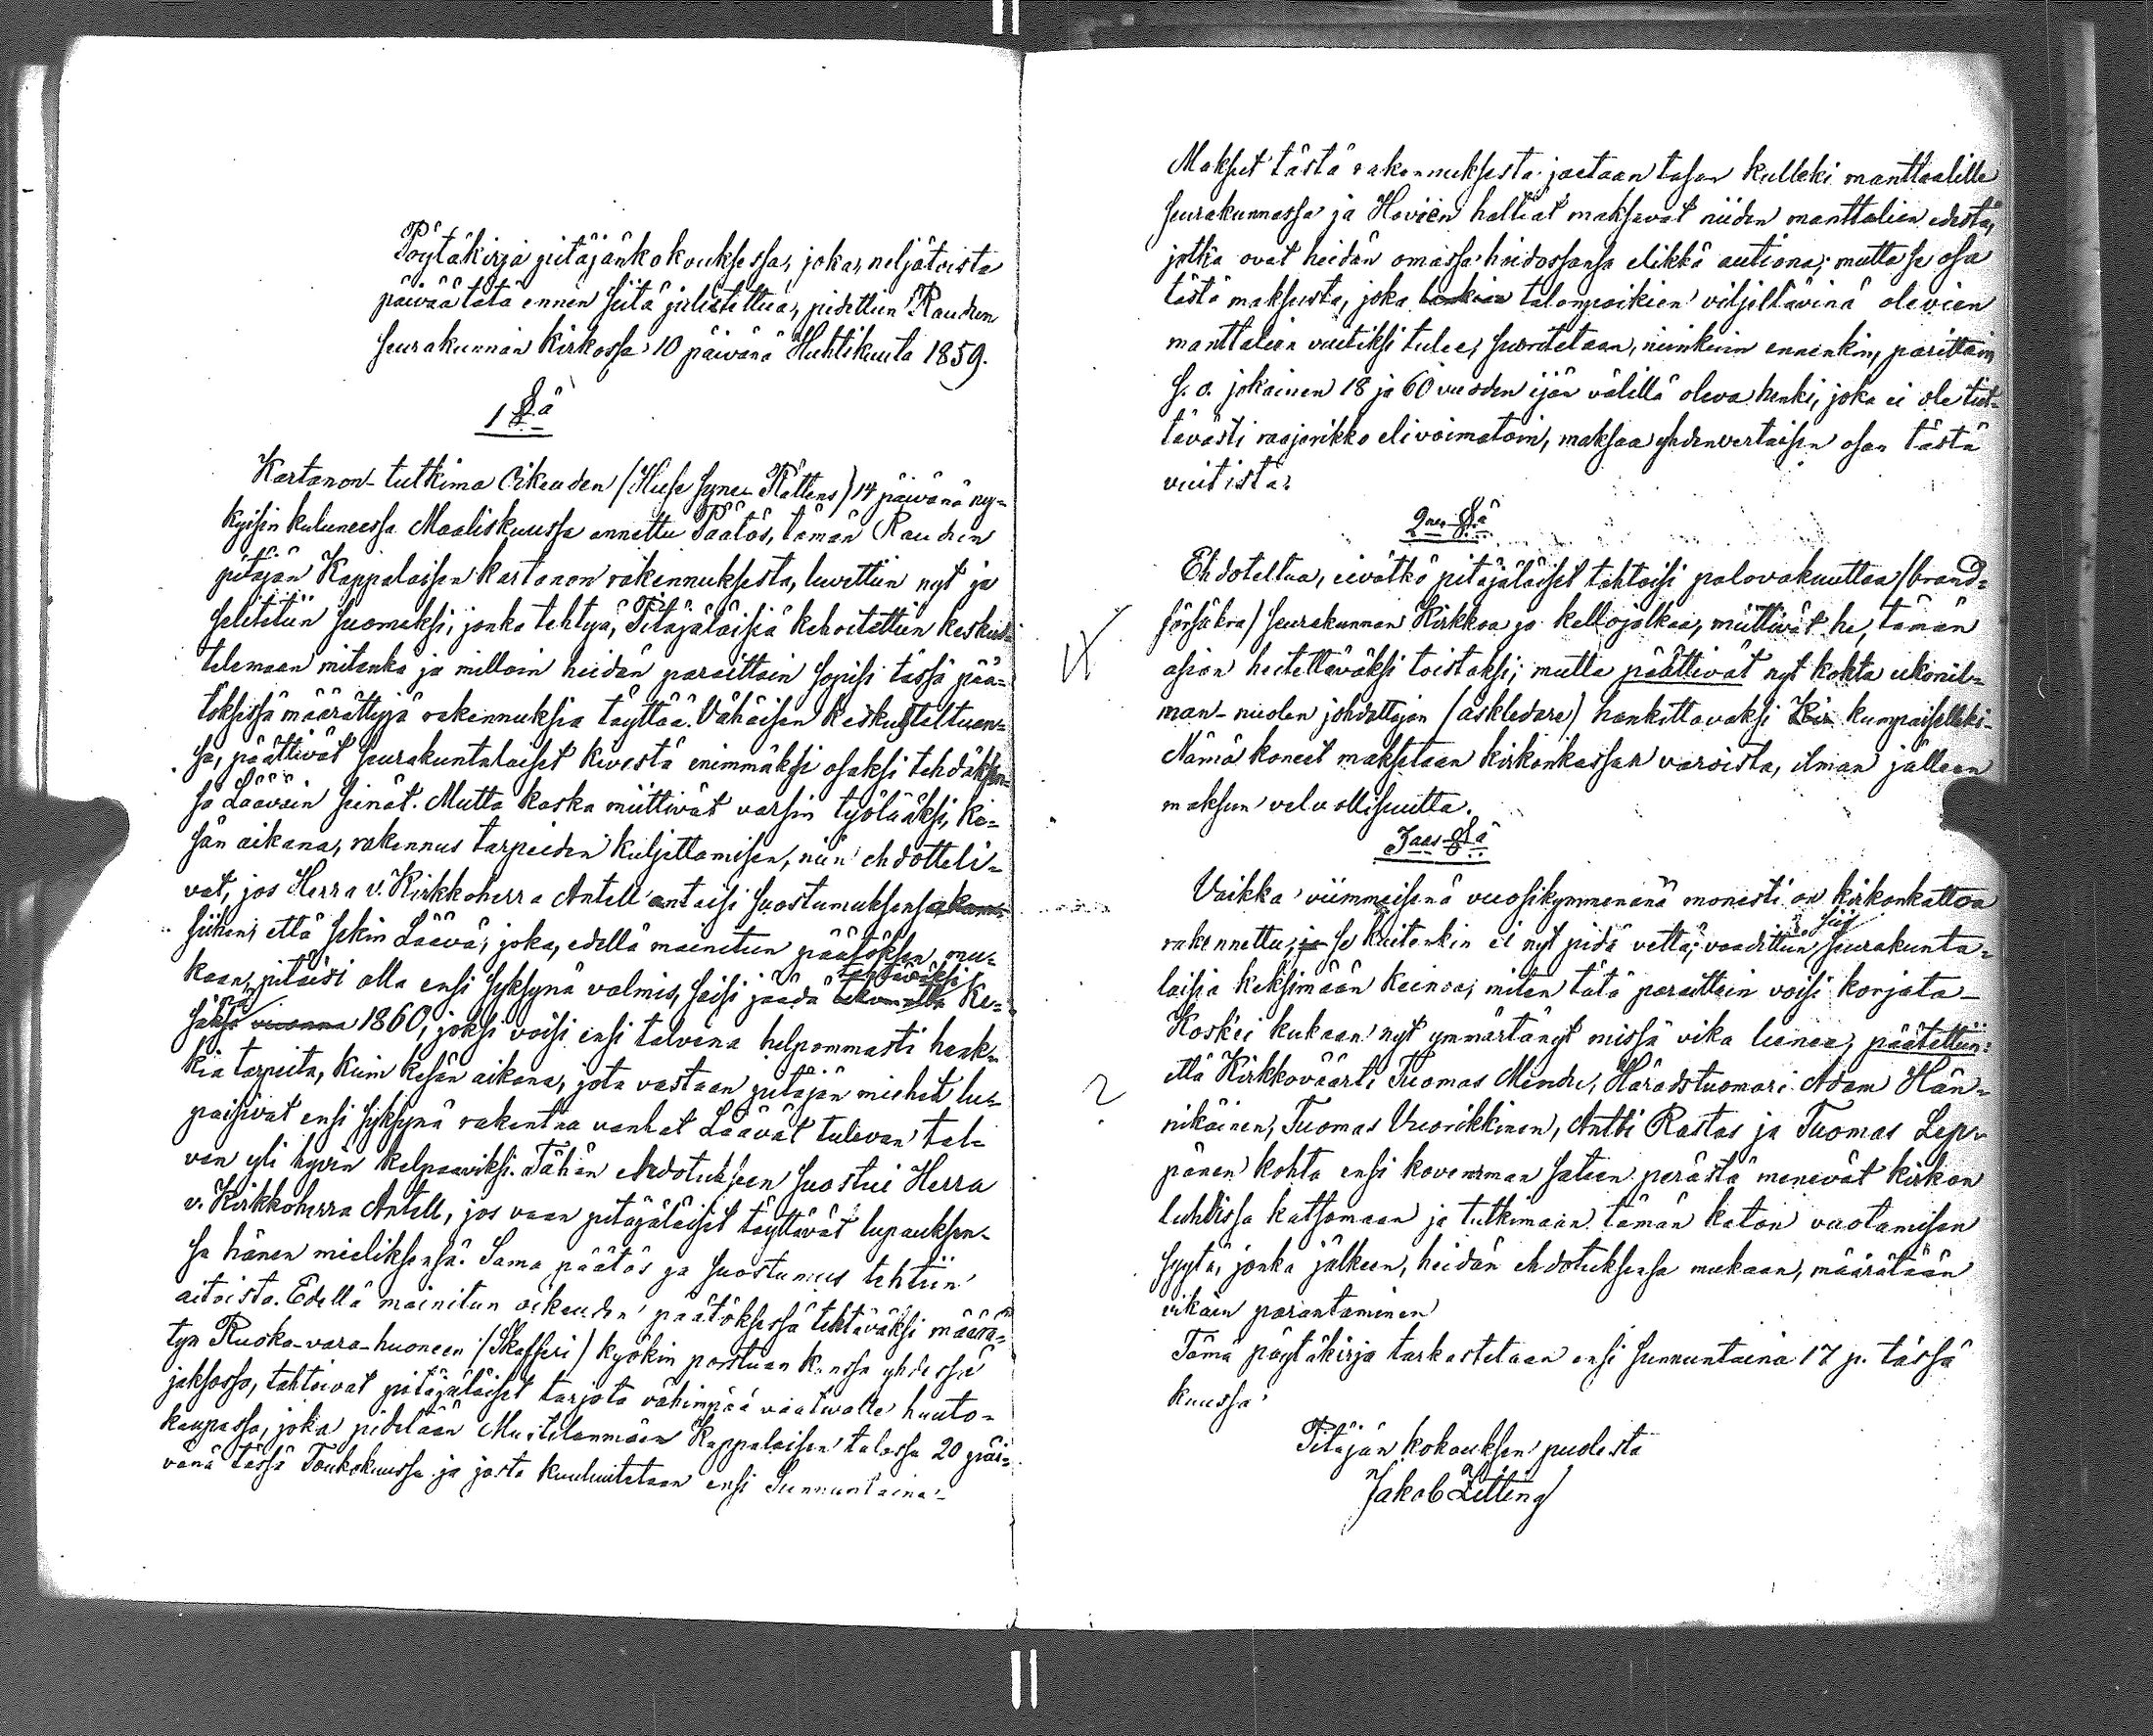 Pöytäkirja pitäjänkokouksessa, joka, neljätoista
päivää tätä ennen siitä julistettua, pidettiin Raudun
seurakunnan kirkossa 10 päivänä Huhtikuuta 1859.
1 §ä
Kartanon-tutkima Oikeuden /Huse Syne-Rättens/ 14 päivänä ny-
kyisin kuluneessa Maaliskuussa annettu Päätös, tämän Raudun
pitäjän Kappalaisen kartanon rakennuksesta, luvettiin nyt ja
selitetiin suomeksi, jonka tehtyä, Pitäjäläisiä kehoitettiin keskus-
telemaan mitenkä ja milloin heidän paraittain sopisi tässä pää-
töksessä määrättyjä rakennuksia täyttää. Vähäisen keskusteltuan-
sa, päättivät seurakuntalaiset kivestä enimmäksi osaksi tehdäksen-
sä Läävän seinät. Mutta koska miittivät varsin työlääksi, ke-
sän aikana, rakennus tarpeiden kuljettamisen, niin ehdotteli-
vat, jos Herra v. Kirkkoherra Antell antaisi suostumuksensa
siihen, että sekin Läävä, joka, edellä mainitun päätöksen mu-
kaan, pitäisi olla ensi syksynä valmis, saisi jäädä tehtäväksi ke-
säksi 1860, joksi voisi ensi talvena helpommasti hank-
kia tarpeita, kuin kesän aikana, jota vastaan pitäjän miehet lu-
paisivat ensi syksynä rakentaa vanhat Läävät tulevan tal-
ven yli hyvin kelpaaviksi. Tähän ehdotukseen suostui Herra
v. Kirkkoherra Antell, jos vaan pitäjäläiset täyttävät lupauksen-
sa hänen mieliksensä. Sama päätös ja suostumus tehtiin
aitoista. Edellä mainitun oikeuden päätöksessä tehtäväksi määrä-
tyn Ruoka-vara-huoneen /Skafferi/ kyökin porstuan kanssa yhdessä
jaksossa, tahtoivat pitäjäläiset tarjota vähimpää vaativalle huuto-
kaupassa, joka pidetään Mustilanmäen Kappalaisen talossa 20 päi-
vänä tässä Toukokuussa ja josta kuulutetaan ensi Sunnuntaina.
Maksut tästä rakennuksesta jaetaan tasan kulleki manttaalille
seurakunnassa ja Hovien haltiat maksavat niiden manttalien edestä,
jotka ovat heidän omassa hoidossansa elikkä autiona; mutta se osa
tästä maksusta, joka talonpoikien viljeltävinä olevien
manttalien vuitiksi tulee, suoritetaan, niinkuin ennenkin, parittain
s. o. jokainen 18 ja 60 vuoden ijän välillä oleva henki, joka ei ole tiet-
tävästi raajarikko eli voimatoin, maksaa yhdenvertaisen osan tästä
vuitista.
2nen §ä
Ehdoteltua, eivätkö pitäjäläiset tahtoisi palovakuuttaa /brand-
försäkra/ seurakunnan Kirkkoa ja kellojalkaa, miittivät he, tämän
asian heitettäväksi toistaksi; mutta päättivät nyt kohta ukonil-
man-nuolen johdattajan /åskledare/ hankittavaksi kumpaiselleki.
Nämä koneet maksetaan kirkonkassan varoista, ilman jälleen
maksun velvollisuutta.
3aas §ä
Vaikka viimmeisenä vuosikymmenenä monesti on kirkonkattoa
rakennettu, se kuitenkin ei nyt pidä vettä; vaadittiin siis seurakunta-
laisia keksimään keinoa, miten tätä paraittain voisi korjata.
Kosk'ei kukaan nyt ymmärtänyt missä vika lienee, päätettiin:
että Kirkkoväärti Tuomas Mendu, Häradstuomari Adam Hän-
nikäinen, Tuomas Vuorikkinen, Antti Rastas ja Tuomas Lep-
pänen kohta ensi kovemman sateen perästä menevät kirkon
luhtissa katsomaan ja tutkimaan tämän katon vuotamisen
syytä, jonka jälkeen, heidän ehdotuksensa mukaan, määrätään
vikain parantaminen
Tämä pöytäkirja tarkastetaan ensi sunnuntaina 17 p. tässä
kuussa.
Pitäjän kokouksen puolesta
Jakob Zitting